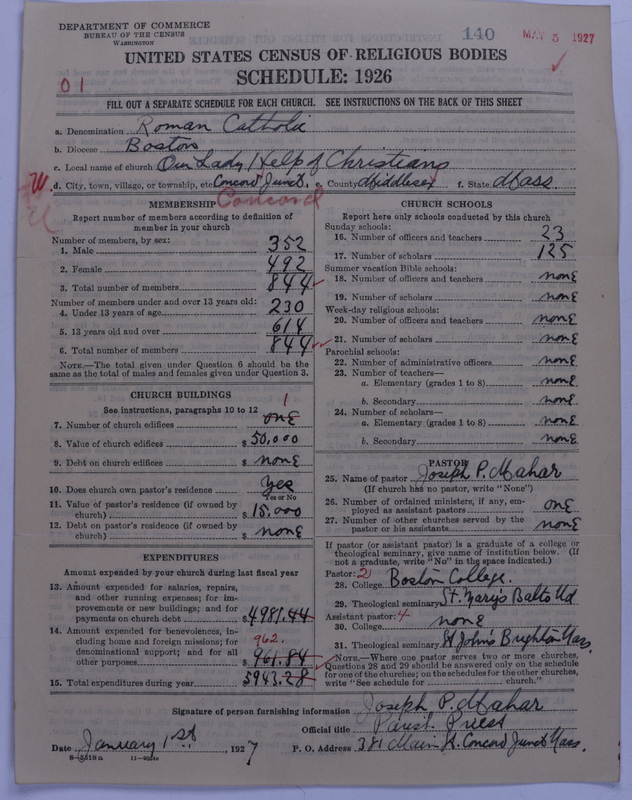 DEPARTMENT OF COMMERCE
BUREAU OF THE CENSUS
WASHINGTON
140
MAY 5 1927
UNITED STATES CENSUS OF RELIGIOUS BODIES
SCHEDULE: 1926
01
FILL OUT A SEPARATE SCHEDULE FOR EACH CHURCH. SEE INSTRUCTIONS ON THE BACK OF THIS SHEET
a. Denomination Roman Catholic
b. Diocese Boston
c. Local name of church Our Lady Help of Christians
d. City, town, village, or township, etc. Concord Junct. e. County Middlesex f. State Mass
Concord
MEMBERSHIP
Report number of members according to definition of
member in your church
Number of members, by sex:
1. Male 352
2. Female 492
3. Total number of members 844
Number of members under and over 13 years old:
4. Under 13 years of age 230
5. 13 years old and over 614
6. Total number of members 844
NOTE.—The total given under Question 6 should be
same as the total of males and females given under Question 3.
CHURCH BUILDINGS
See instructions, paragraphs 10 to 12
1
7. Number of church edifices one
8. Value of church edifices $ 50,000
9. Debt on church edifices $ none
10. Does church own pastor's residence yes
Yes or No
11. Value of pastor's residence (if owned by
church) $ 15,000
12. Debt on pastor's residence (if owned by
church) $ none
EXPENDITURES
Amount expended by your church during last fiscal year
13. Amount expended for salaries, repairs,
and other running expenses; for im-
provements or new buildings; and for
payments on church debt $ 4981.44
14. Amount expended for benevolences, in-
cluding home and foreign missions; for
denominational support; and for all
other purposes 961.84
962.
15. Total expenditures during year 5943.28
CHURCH SCHOOLS
Report here only schools conducted by this church
Sunday schools:
16. Number of officers and teachers 23
17. Number of scholars 125
Summer vacation Bible schools:
18. Number of officers and teachers none
19. Number of scholars none
Week-day religious schools:
20. Number of officers and teachers none
21. Number of scholars none
Parochial schools:
22. Number of administrative officers none
23. Number of teachers—
a. Elementary (grades 1 to 8) none
b. Secondary none
24. Number of scholars—
a. Elementary (grades 1 to 8) none
b. Secondary none
PASTOR
25. Name of pastor Joseph P. Mahar
(If church has no pastor, write "None")
26. Number of ordained ministers, if any, em-
ployed as assistant pastors one
27. Number of other churches served by the
pastor or his assistants none
If pastor (or assistant pastor) is a graduate of a college or
theological seminary, give name of institution below. (If
not a graduate, write "No" in the space indicated.)
Pastor: 2
28. College Boston College.
29. Theological seminary St. Mary's Balto Md
Assistant pastor: 4
30. College none
31. Theological seminary St John's Brighton Mass.
NOTE.—Where one pastor serves two or more churches,
Questions 28 and 29 should be answered only on the schedule
for one of the churches; on the schedules for the other churches,
write "See schedule for church."
Signature of person furnishing information Joseph P. Mahar
Official title Parish Priest
Date January 1st, 1927 P. O. Address 381 Main St. Concord Junct Mass.